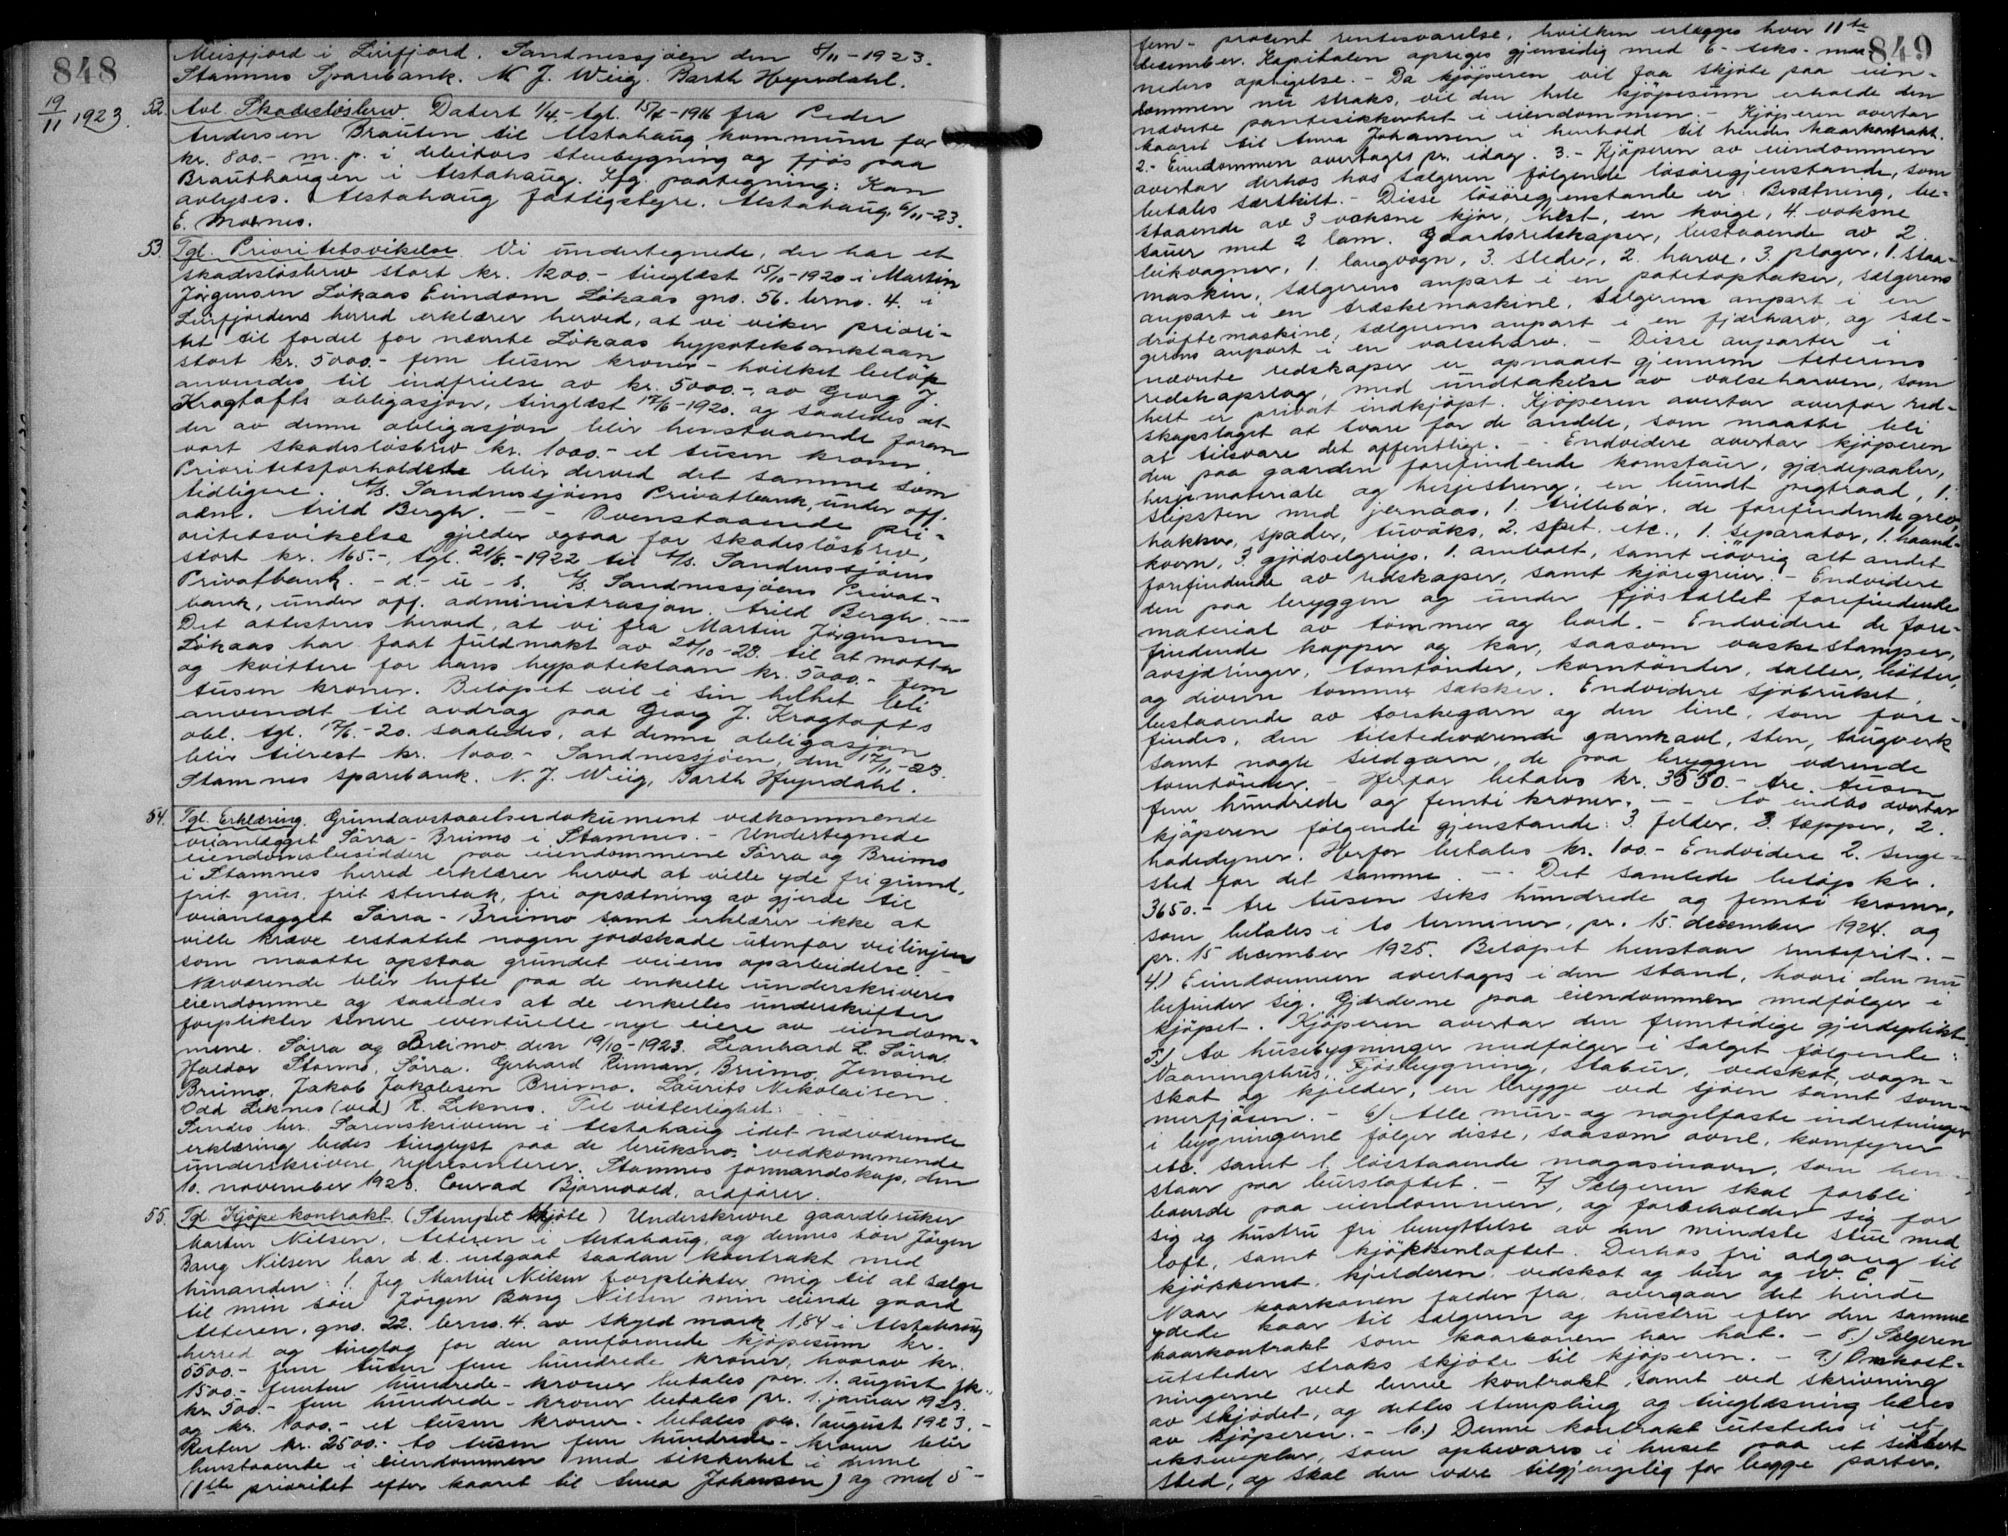 848
Meisfjord i Leirfjord. Sandnessjøen den 8/11-1923.
Stamnes Sparebank. N. J. Wiig. Barth Heyerdahl.
19/11 1923.
52. Avl. Skadesløsbrev. Datert 1/4.- tgl. 15/4-1916 fra Peder
Andersen Brauten til Alstahaug kommune for
kr. 800.- m. p. i debitors stuebygning og fjøs paa
Brauthaugen i Alstahaug. Sfg. paategning: Kan
avlyses. Alstahaug fattigstyre. Alstahaug, 6/11-23.
E. Mornes.
53. Tgl. Prioritetsvikelse. Vi undertegnede, der har et
skadesløsbrev stort kr. 1200.- tinglæst 15/10-1920 i Martin
Jørgensen Løkaas Eiendom Løkaas gno. 56. brno. 4. i
Leirfjordens herred erklærer herved, at vi viker priori-
tet til fordel for nævnte Løkaas hypotekbanklaan
stort kr. 5000.- fem tusen kroner - hvilket beløp
anvendes til indfrielse av kr. 5000.-, av Georg J.
Krogtofts obligasjon, tinglæst 17/6-1920. og saaledes at
der av denne obligasjon blir henstaaende foran
vort skadesløsbrev kr. 1000.- et tusen kroner.
Prioritetsforholdene blir derved det samme som
tidligere. A/S. Sandnessjøens Privatbank, under off.
adm. Arild Bergh. - - Ovenstaaende pri-
oritetsvikelse gjelder ogsaa for skadesløsbrev,
stort kr. 165.-, tgl. 21/8-1922 til A/S. Sandnessjøens
Privatbank. - d.- u - s. A/S Sandnessjøens Privat-
bank, under off. administrasjon. Arild Bergh. ---
Det attesteres herved, at vi fra Martin Jørgensen
Løkaas har faat fuldmakt av 24/10-23. til at motta
og kvittere for hans hypoteklaan kr. 5000.- fem
tusen kroner. Beløpet vil i sin helhet bli
anvendt til avdrag paa Georg J. Krogtofts
obl. tgl. 17/6.-20. saaledes, at denne obligasjon
blir tilrest kr. 1000.- Sandnessjøen, den 17/11-23.
Stamnes sparebank. N. J. Wiig, Barth Heyerdahl.
54. Tgl. Erklæring. Grundavstaaelsesdokument vedkommende
veianlægget Sørra - Breimo i Stamnes. - Undertegnede
eiendomsbesiddere paa eiendommene Sørra og Breimo
i Stamnes herred erklærer herved at ville yde fri grund,
frit grus, frit stentak, fri opsætning av gjerde til
veianlægget Sørra - Breimo samt erklærer ikke at
ville kræve erstattet nogen jordskade utenfor veilinjen
som maatte opstaa grundet veiens oparbeidelse. -
Nærværende blir hefte paa de enkelte underskriveres
eiendomme og saaledes at de enkeltes underskrifter
forplikter senere eventuelle nye eiere av eiendom-
mene. Sørra og Breimo den 19/10-1923. Leonhard L. Sørra.
Haldor Stormo, Sørra. Gerhard Reinman, Breimo, Jensine
Breimo, Jakob Jakobsen Breimo. Laurits Nikolaisen.
Odd Leknes (ved) R. Leknes. Til vitterlighet:
Sendes hr. Sorenskriveren i Alstahaug idet nærværende
erklæring bedes tinglyst paa de bruksno. vedkommende
underskrivere representerer. Stamnes formandskap, den
10. november 1923. Conrad Bjørnvold, ordfører.
55. Tgl. Kjøpekontrakt. (Stemplet skjøte) Underskrevne gaardbruker
Martin Nilsen, Alteren i Alstahaug, og dennes søn Jørgen
Bang Nilsen har d. d. indgaat saadan kontrakt med
hinanden: 1. Jeg Martin Nilsen forplikter mig til at sælge
til min søn Jørgen Bang Nilsen min eiende gaard
Alteren, gno. 22. brno. 4. av skyld mark 1,84 i Alstahaug
herred og tinglag for den omforenede kjøpesum kr.
5500.- fem tusen fem hundrede kroner, hvorav kr.
1500.- femten hundrede - kroner betales per. 1. august fk.,
kr. 500.- fem hundrede - kroner betales pr. 1. januar 1923.
og kr. 1000.- et tusen kroner - betales per. 1 august 1923. -
Resten kr. 2500.- to tusen fem hundrede - kroner blir
henstaaende i eiendommen med sikkerhet i denne
(1ste prioritet efter kaaret til Anna Johansen) og med 5-
849
fem - procent rentesvarelse, hvilken erlægges hver 11te
december. Kapitalen opsiges gjensidig med 6 - seks - maa-
neders opsigelse. - Da kjøperen vil faa skjøte paa eien-
dommen nu straks, vil den hele kjøpesum erholde den
nævnte pantesikkerhet i eiendommen. - Kjøperen overtar
kaaret til Anna Johansen i henhold til hendes kaarkontrakt.
2.- Eiendommen overtages pr. idag. 3. - Kjøperen av eiendommen
overtar derhos hos sælgeren følgende løsøregjenstande, som
betales særskilt. - Disse løsøregjenstande er: Besætning, be-
staaende av 3 voksne kjør, hest, en kvige, 4. voksne
sauer med 2 lam. Gaardsredskaper, bestaaende av 2
leikvogner, 1. langvogn, 3. sleder, 2. harve, 3. ploger, 1. slaa-
maskin, sælgerens anpart i en potetoptaker, sælgerens
anpart i en træskemaskine, sælgerens anpart i en
drøftemaskine, sælgerens anpart i en fjærharv, og sæl-
gerens anport i en valseharv. - Disse anparter i
nævnte redskaper er opnaaet gjennem Alterens
redskapslag, med undtakelse av valseharven, som
helt er privat indkjøpt. Kjøperen overtar overfor red-
skapslaget at svare for de andele, som maatte bli
at tilsvare det offentlige. - - Endvidere overtar kjøperen
den paa gaarden forefindende kornstaur, gjærdepaaler,
hesjemateriale og hesjestreng, en bundt pigtraad, 1.
slipsten med jernaas, 1. trillebør, de forefindende grev,
hakker, spader, turvaks, 2. spet. etc., 1. separator, 1. haand-
kvern, 3. gjødselgreip, 1. ambolt, samt iøvrig alt andet
forefindende av redskaper, samt kjøregreier. - Endvidere
den paa bryggen og under fjøstallet forefindende
material av tømmer og bord. - Endvidere de fore-
findende kopper og kar, saasom vaskestamper,
avsjæringer, tomtønder, korntønder, daller, bøtter,
og diverse tomme sækker. Endvidere sjøbruket,
bestaaende av torskegarn og den line, som fore-
findes, den tilstedeværende garnkavl, sten, taugverk
samt nogle sildgarn, de paa bryggen værende
tomtønder. - Herfor betales kr. 3550.- tre tusen
fem hundrede og femti kroner. - - Av indbo overtar
kjøperen følgende gjenstande: 3. felder, 3. tæpper, 2.
hodedyner. Herfor betales kr. 100.- Endvidere 2. senge-
sted for det samme. - - Det samlede beløp kr.
3650.- tre tusen seks hundrede og femti kroner,
som betales i to terminer, pr. 15. december 1924. og
pr. 15 december 1925. Beløpet henstaar rentefrit. -
4) Eiendommen overtages i den stand, hvori den nu
befinder sig. Gjærderne paa eiendommen medfølger i
kjøpet. Kjøperen overtar den fremtidige gjerdeplikt.
5.) Av husebygninger medfølger i salget følgende:
Vaaningshus, Fjøsbygning, stabur, vedskot, vogn-
skot og kjelder, en brygge ved sjøen samt som-
merfjøsen. - 6) Alle mur- og nagelfaste indretninger
i bygningerne følger disse, saasom ovne, komfyrer
etc. samt 1. løsstaaende magasinovn, som hen-
staar paa bursloftet. - 7) Sælgeren skal forbli
boende paa eiendommen, og forbeholder sig for
sig og hustru fri benyttelse av den mindste stue med
loft, samt kjøkkenloftet. Derhos fri adgang til
kjøkkenet, kjelderen, vedskot og bur og W. C.
Naar kaarkonen falder fra, overgaar det hende
ydede kaar til sælgeren og hustru efter den samme
kaarkontrakt som kaarkonen har hat. - 8.) Sælgeren
utsteder straks skjøte til kjøperen. - 9.) Omkost-
ningerne ved denne kontrakt, samt ved skrivning
av skjødet, og dettes stempling og tinglæsning bæres
av kjøperen. - 10.) Denne kontrakt utstedes i et
eksemplar, som opbevares i huset paa et sikkert
sted, og skal den være tilgjengelig for begge parter.